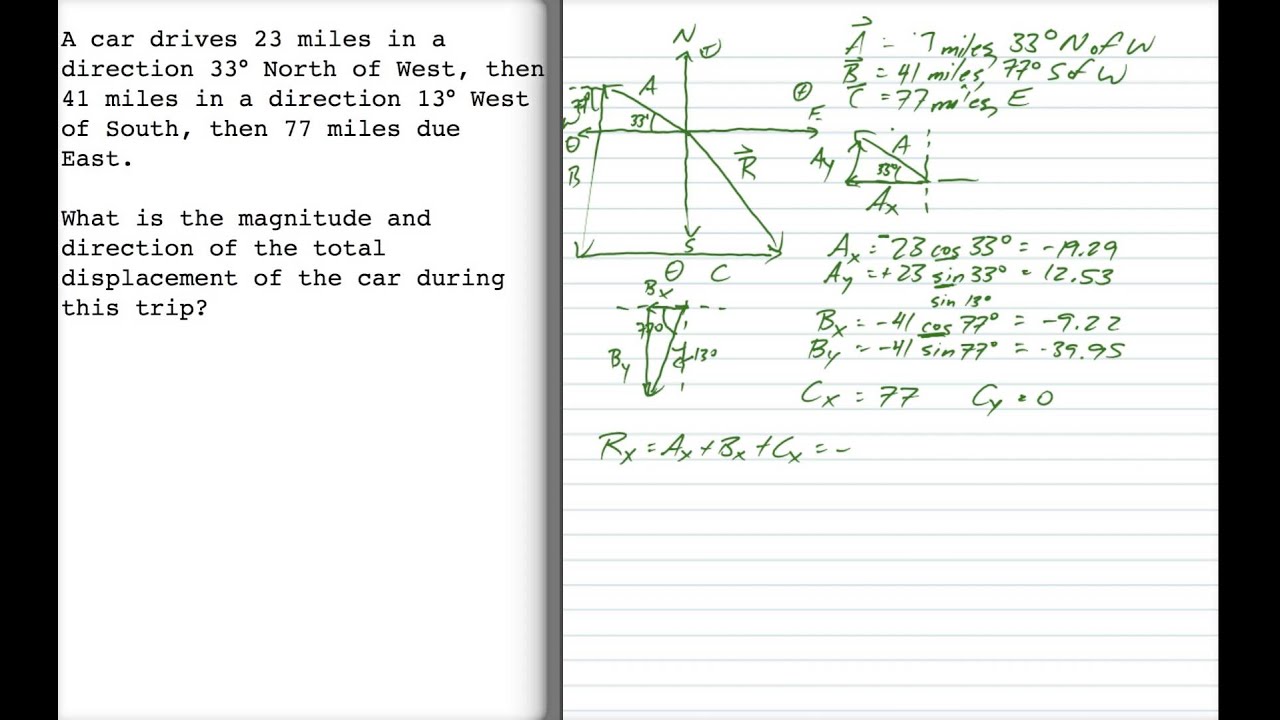 A car drives 23 miles in a
direction 33° North of West, then
41 miles in a direction 13° West
of South, then 77 miles due
East.
What is the magnitude and
direction of the total
displacement of the car during
this trip?
N
A
33°
W
E
B
R
S
C
A = 7 miles, 33° N of W
B = 41 miles, 77° S of W
C = 77 miles, E
Ay A
33°
Ax
Ax = -23 cos 33° = -19.29
Ay = +23 sin 33° = 12.53
sin 13°
Bx = -41 cos 77° = -9.22
By = -41 sin 77° = -39.95
Bx
77°
By 13°
Cx = 77 Cy = 0
Rx = Ax + Bx + Cx = -